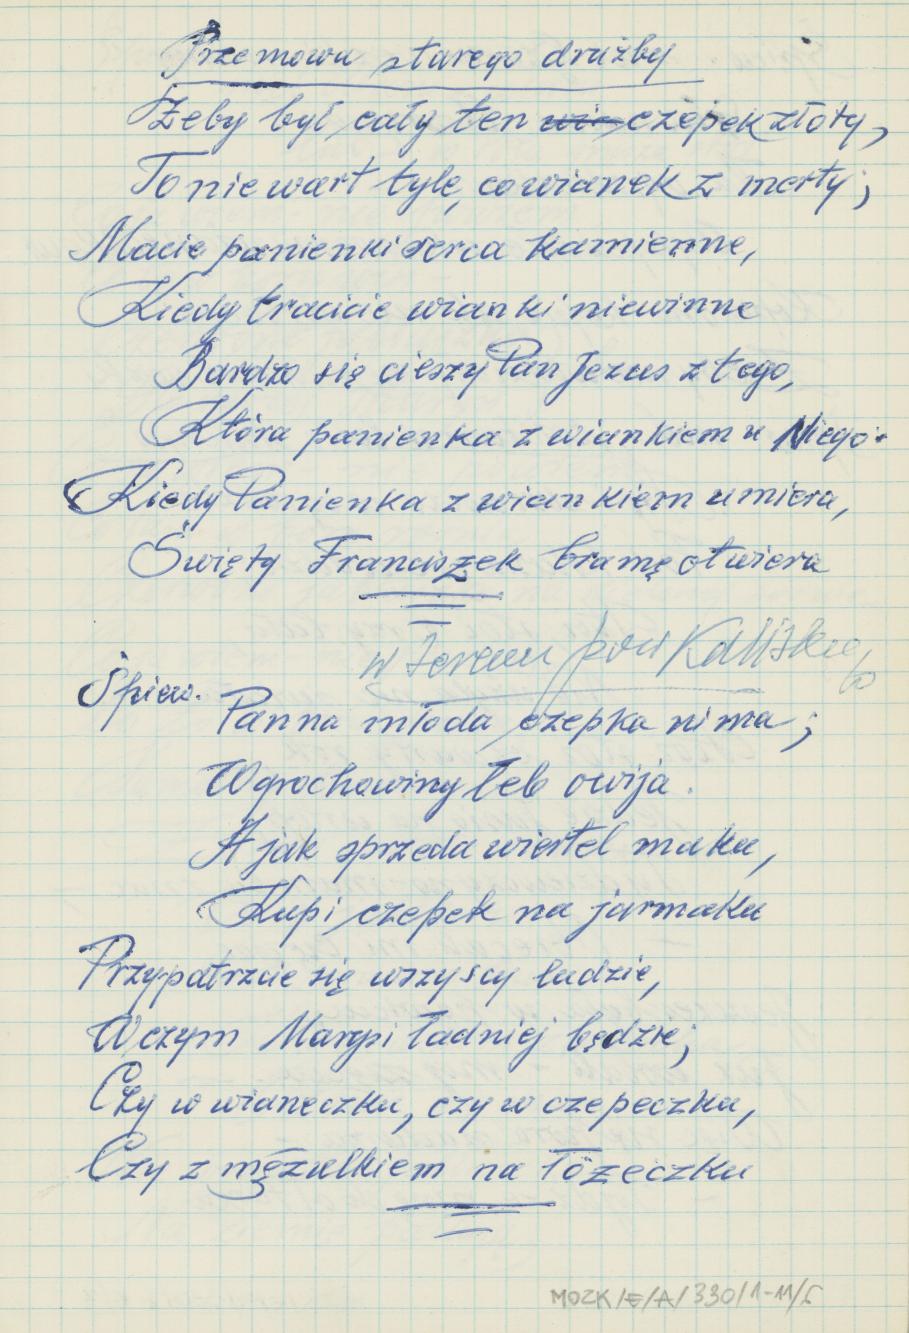 Przemowa starego drużby
Żeby był cały ten czepek złoty,
To nie wart tyle, co wianek z merty;
Macie panienki serca kamienne,
Kiedy tracicie wianki niewinne
Bardzo się cieszy Pan Jezus z tego,
Która panienka z wiankiem u Niego.
Kiedy Panienka z wiankiem umiera,
Święty Franciszek bramę otwiera
w terenu pow
Śpiew.
Panna młoda czepka ni ma;
W grochowiny łeb owija.
A jak sprzeda wiertel maku,
Kupi czepek na jarmaku
Przypatrzcie się wszyscy ludzie,
W czym Marysi ładniej będzie;
Czy w wianeczku, czy w czepeczku,
Czy z mężulkiem na łóżeczku
MOZK/E/A/330/1-11/5